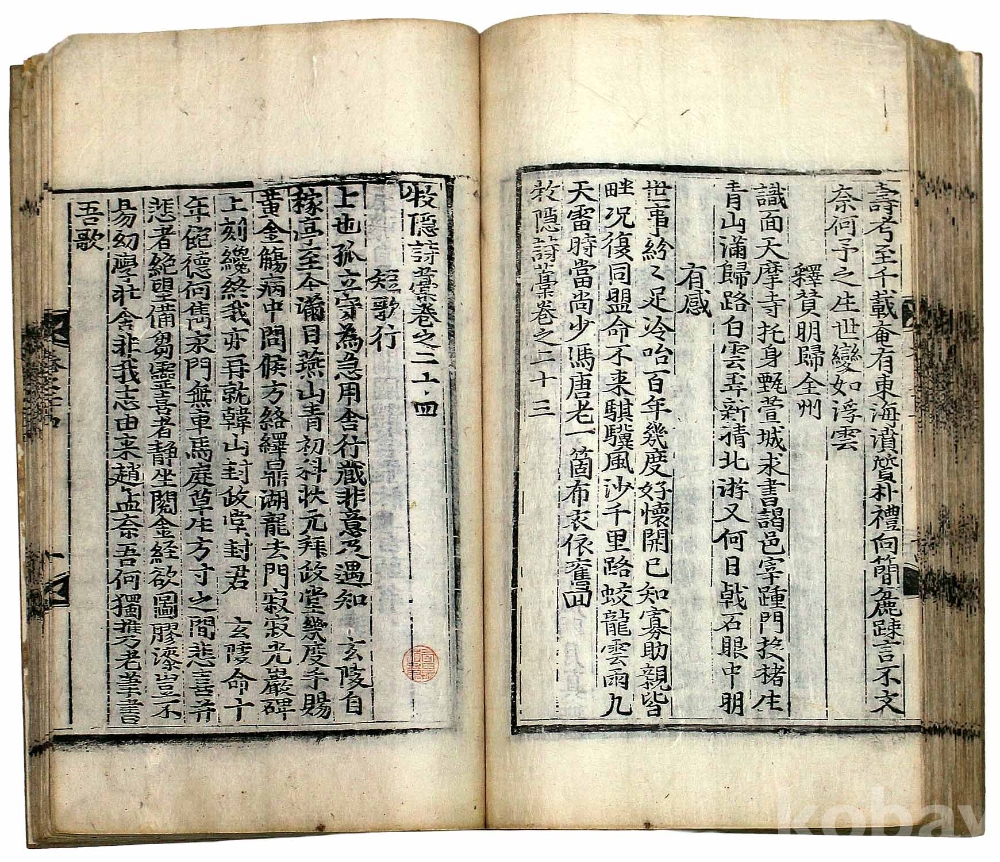 壽考至千載奄有東海濆質朴禮向簡麁踈言不文
奈何予之生世變如浮雲
釋賛明歸全州
識面天摩寺托身甄萱城求書謁邑宰踵門投楮生
青山滿歸路白雲弄新猜北游又何日戟石眼中明
有感
世事紛〻足冷咍百年幾度好懷開已知寡助親皆
畔况復同盟命不来騏驥風沙千里路蛟龍雲雨九
天雷時當尚少馮唐老一箇布衣依舊回
牧隠詩藁卷之二十三
牧隠詩藁卷之二十四
短歌行
上也孤立守為急用舍行藏非意及遇知 玄陵自
稼亭至今滿目燕山青初科狀元拜政堂幾度手賜
黄金觴病中問候方絡繹鼎湖龍去門寂寂光巖碑
上刻纔終我亦再就韓山封政堂封君 玄陵命十
年飽德何㒞求門無車馬庭草生方寸之間悲喜并
悲者絶望備芻靈喜者靜坐閲金経欲圖膠漆豈不
易幼學壮舎非我志由来趙孟奈吾何獨携老筆書
吾歌
kobay